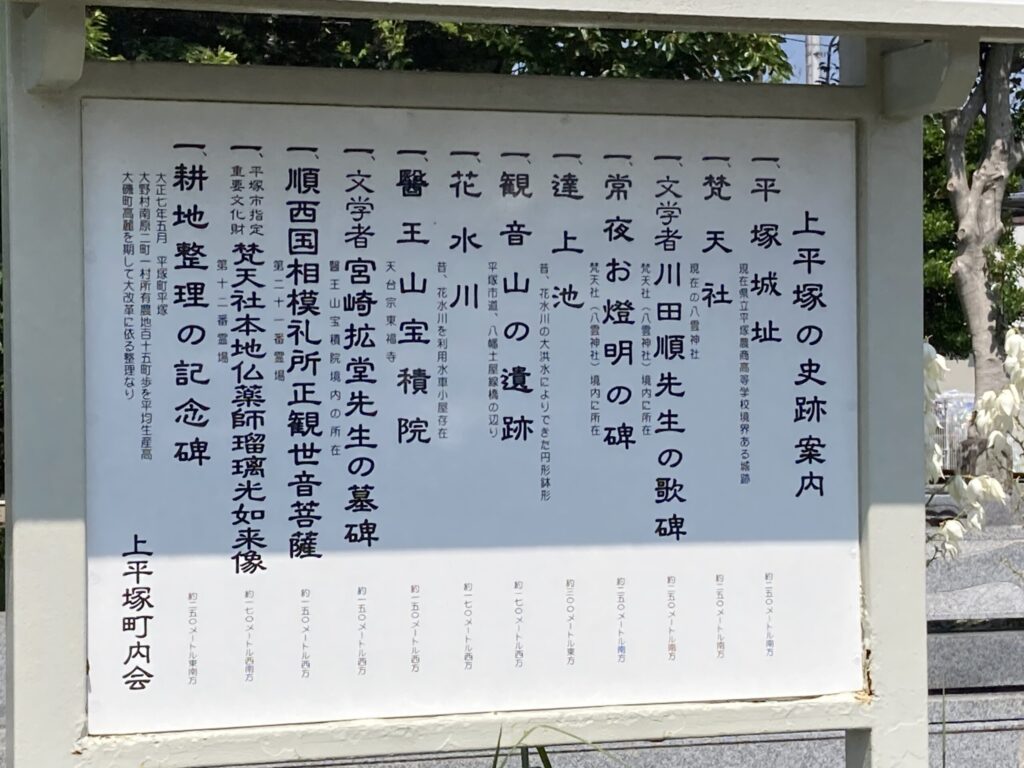 上平塚の史跡案内
一、平塚城址
現在県立平塚農商高等学校境界ある城跡
約二五〇メートル南方
一、梵天社
現在の八雲神社
約二五〇メートル南方
一、文学者川田順先生の歌碑
梵天社(八雲神社)境内に所在
約二五〇メートル南方
一、常夜お燈明の碑
梵天社(八雲神社)境内に所在
約二五〇メートル南方
一、達上池
昔、花水川の大洪水によりできた円形鉢形
約三〇〇メートル東方
一、観音山の遺跡
平塚市道、八幡土屋線橋の辺り
約一七〇メートル西方
一、花水川
昔、花水川を利用水車小屋存在
約一七〇メートル西方
一、醫王山宝積院
天台宗東福寺
約一五〇メートル西方
一、文学者宮崎拡堂先生の墓碑
醫王山宝積院境内の所在
約一五〇メートル西方
一、順西国相模礼所正観世音菩薩
第二十一番霊場
約一五〇メートル西方
一、平塚市指定重要文化財 梵天社本地仏薬師瑠璃光如来像
第十二番霊場
約一七〇メートル西南方
一、耕地整理の記念碑
大正七年五月 平塚町平塚
大野村南原二町一村所有農地百十五町歩を平均生産高
大磯町高麗を期して大改革に依る整理なり
約二五〇メートル東南方
上平塚町内会